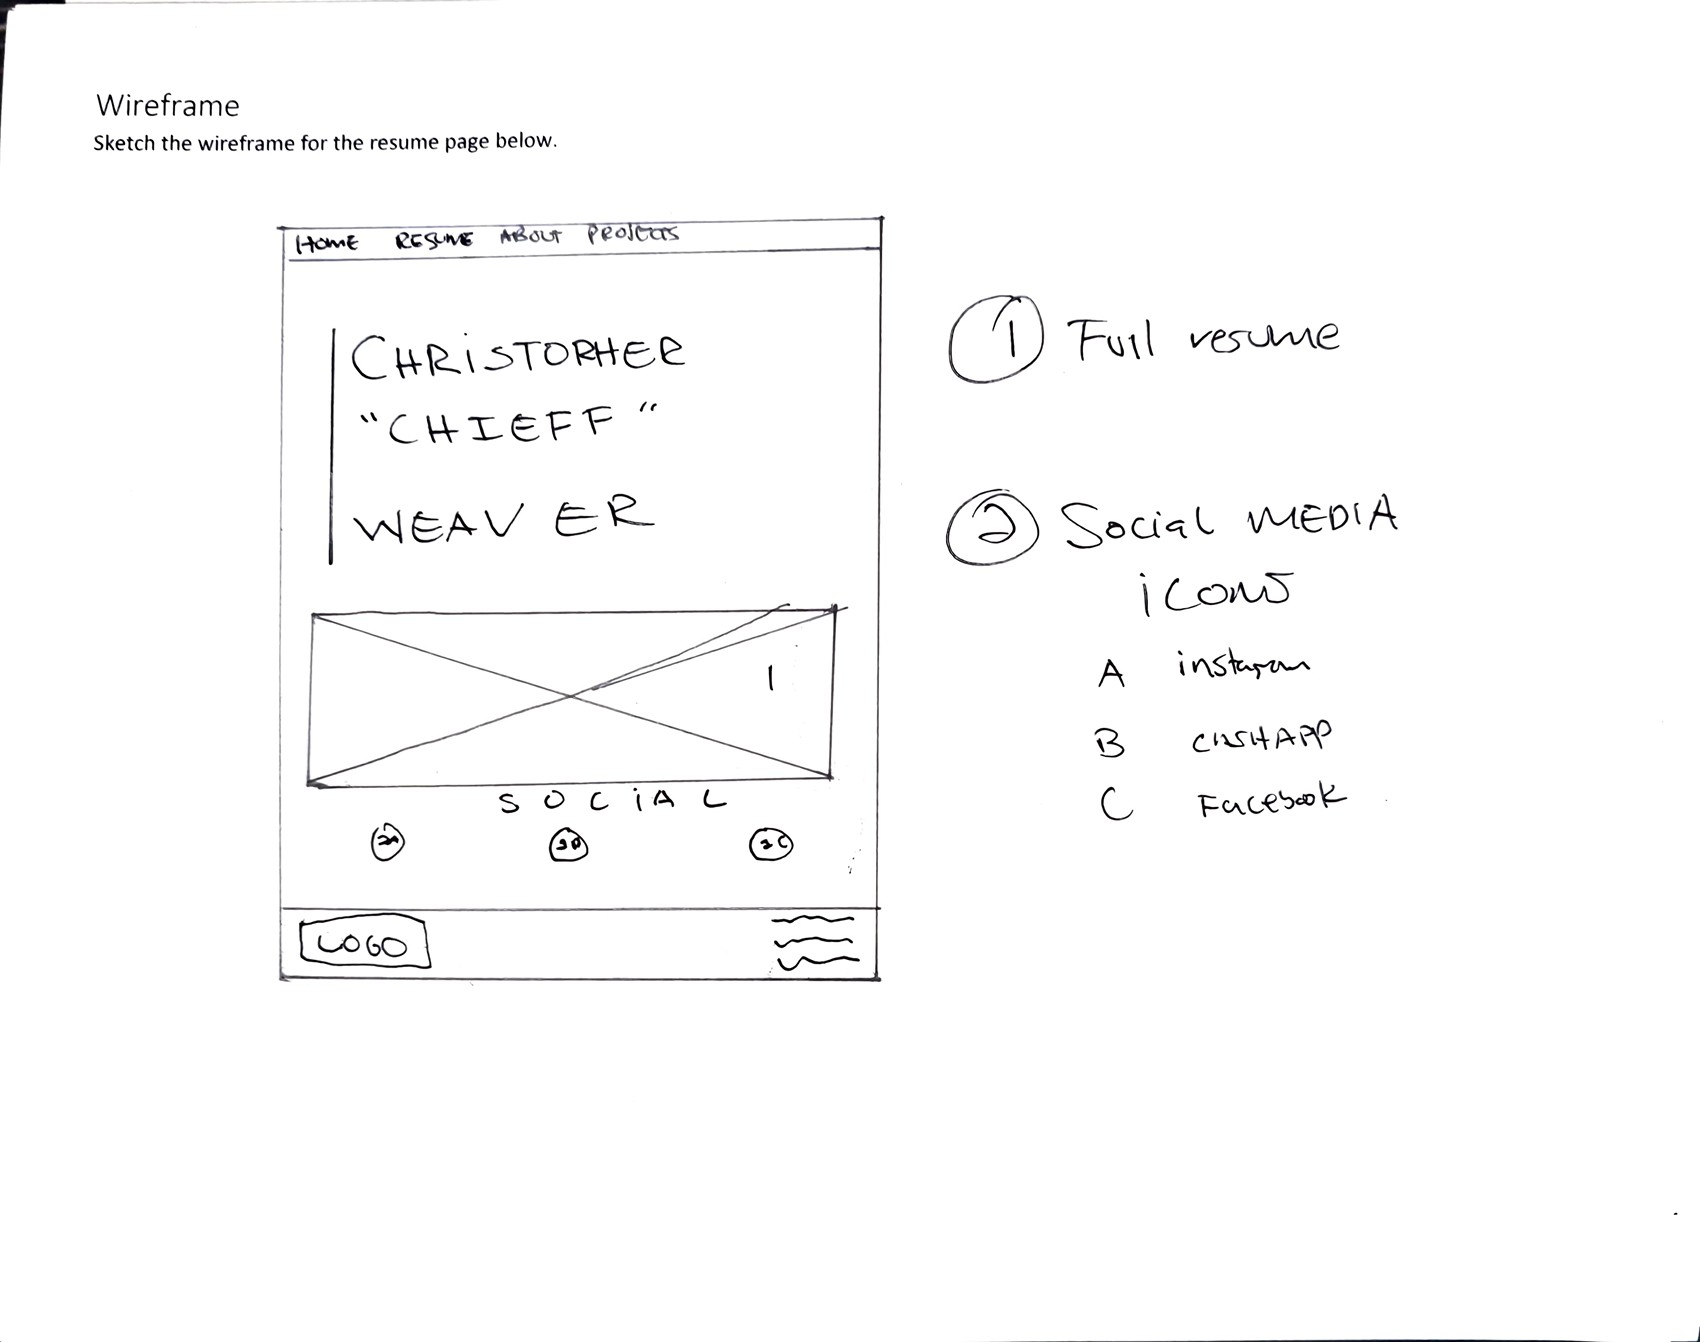 Wireframe
Sketch the wireframe for the resume page below.
HOME RESUME ABOUT PROJECTS
CHRiSTOPHER
"CHIEFF"
WEAVER
1
SOCiAL
2A 2B 2C
LOGO
1 Full resume
2 Social MEDIA
icons
A instagram
B CASHAPP
C Facebook